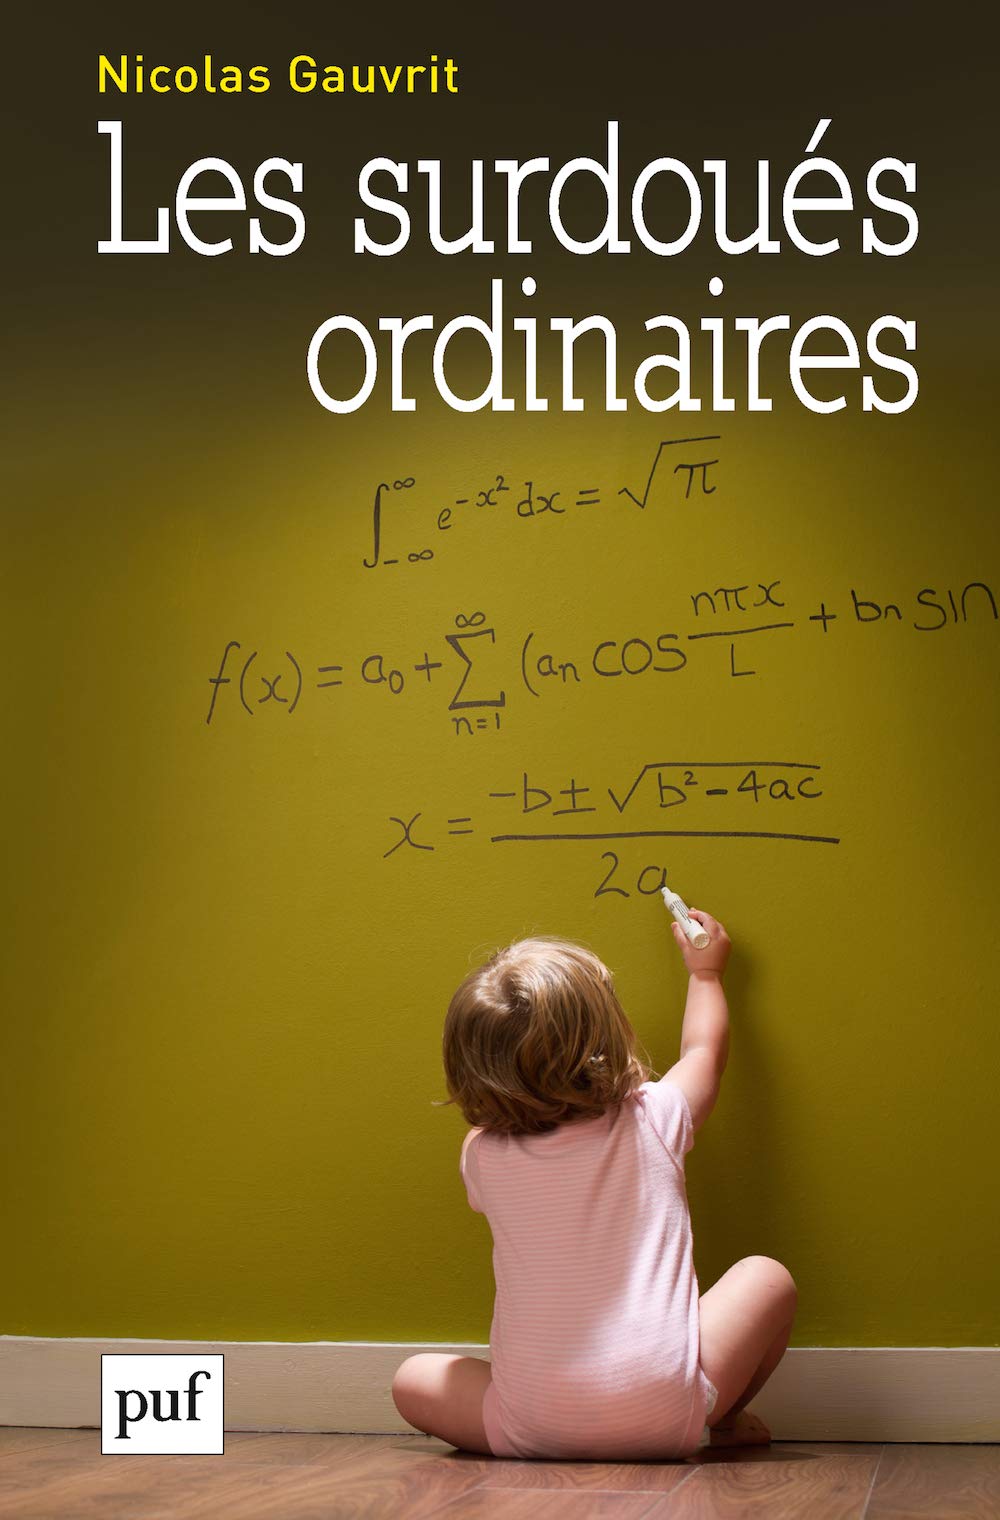 Nicolas Gauvrit
Les surdoués
ordinaires
∫_{-∞}^{∞} e^{-x²} dx = √π
f(x) = a₀ + ∑_{n=1}^{∞} (aₙ COS nπx/L + bₙ SIN
x = (-b ± √(b² - 4ac)) / 2a
puf